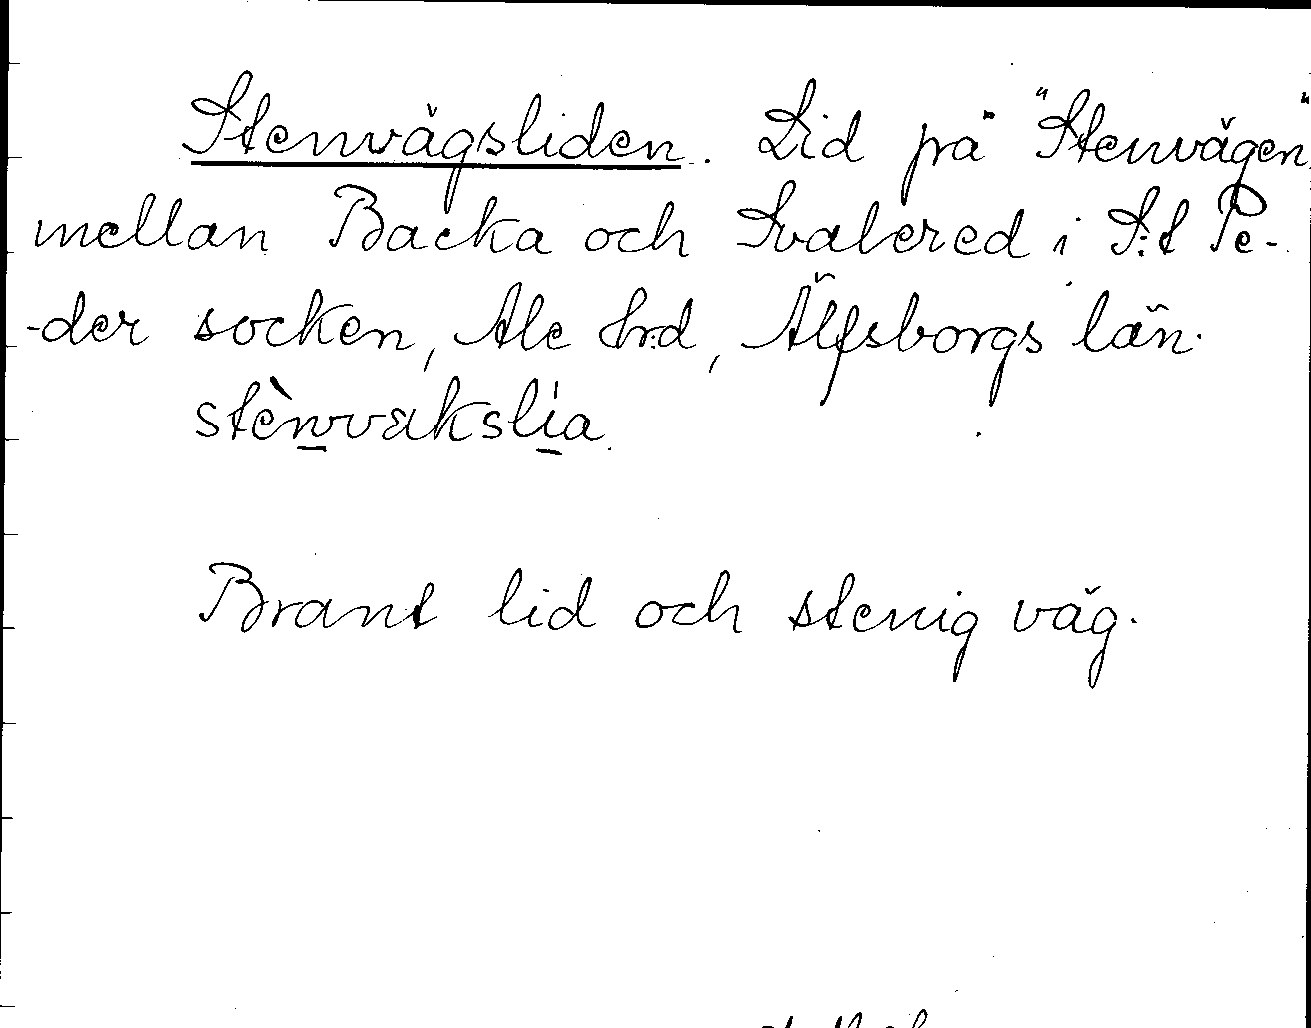 Stenvägsliden. Lid på "Stenvägen"
mellan Backa och Svalered i S:t Pe-
-der socken, Ale hrd, Älfsborgs län.
stènvækslia.
Brant lid och stenig väg.